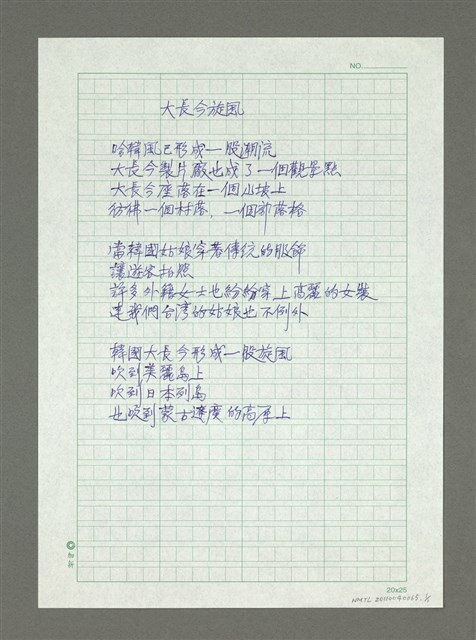 NO.
大長今旋風
哈韓風已形成一股潮流
大長今製片廠也成了一個觀景點
大長今座落在一個山坡上
彷彿一個村落，一個部落格
當韓國姑娘穿著傳統的服飾
讓遊客拍照
許多外籍女士也紛紛穿上高麗的女裝
連我們台灣的姑娘也不例外
韓國大長今形成一股旋風
吹到美麗島上
吹到日本列島
也吹到蒙古遼廣的高原上
20x25